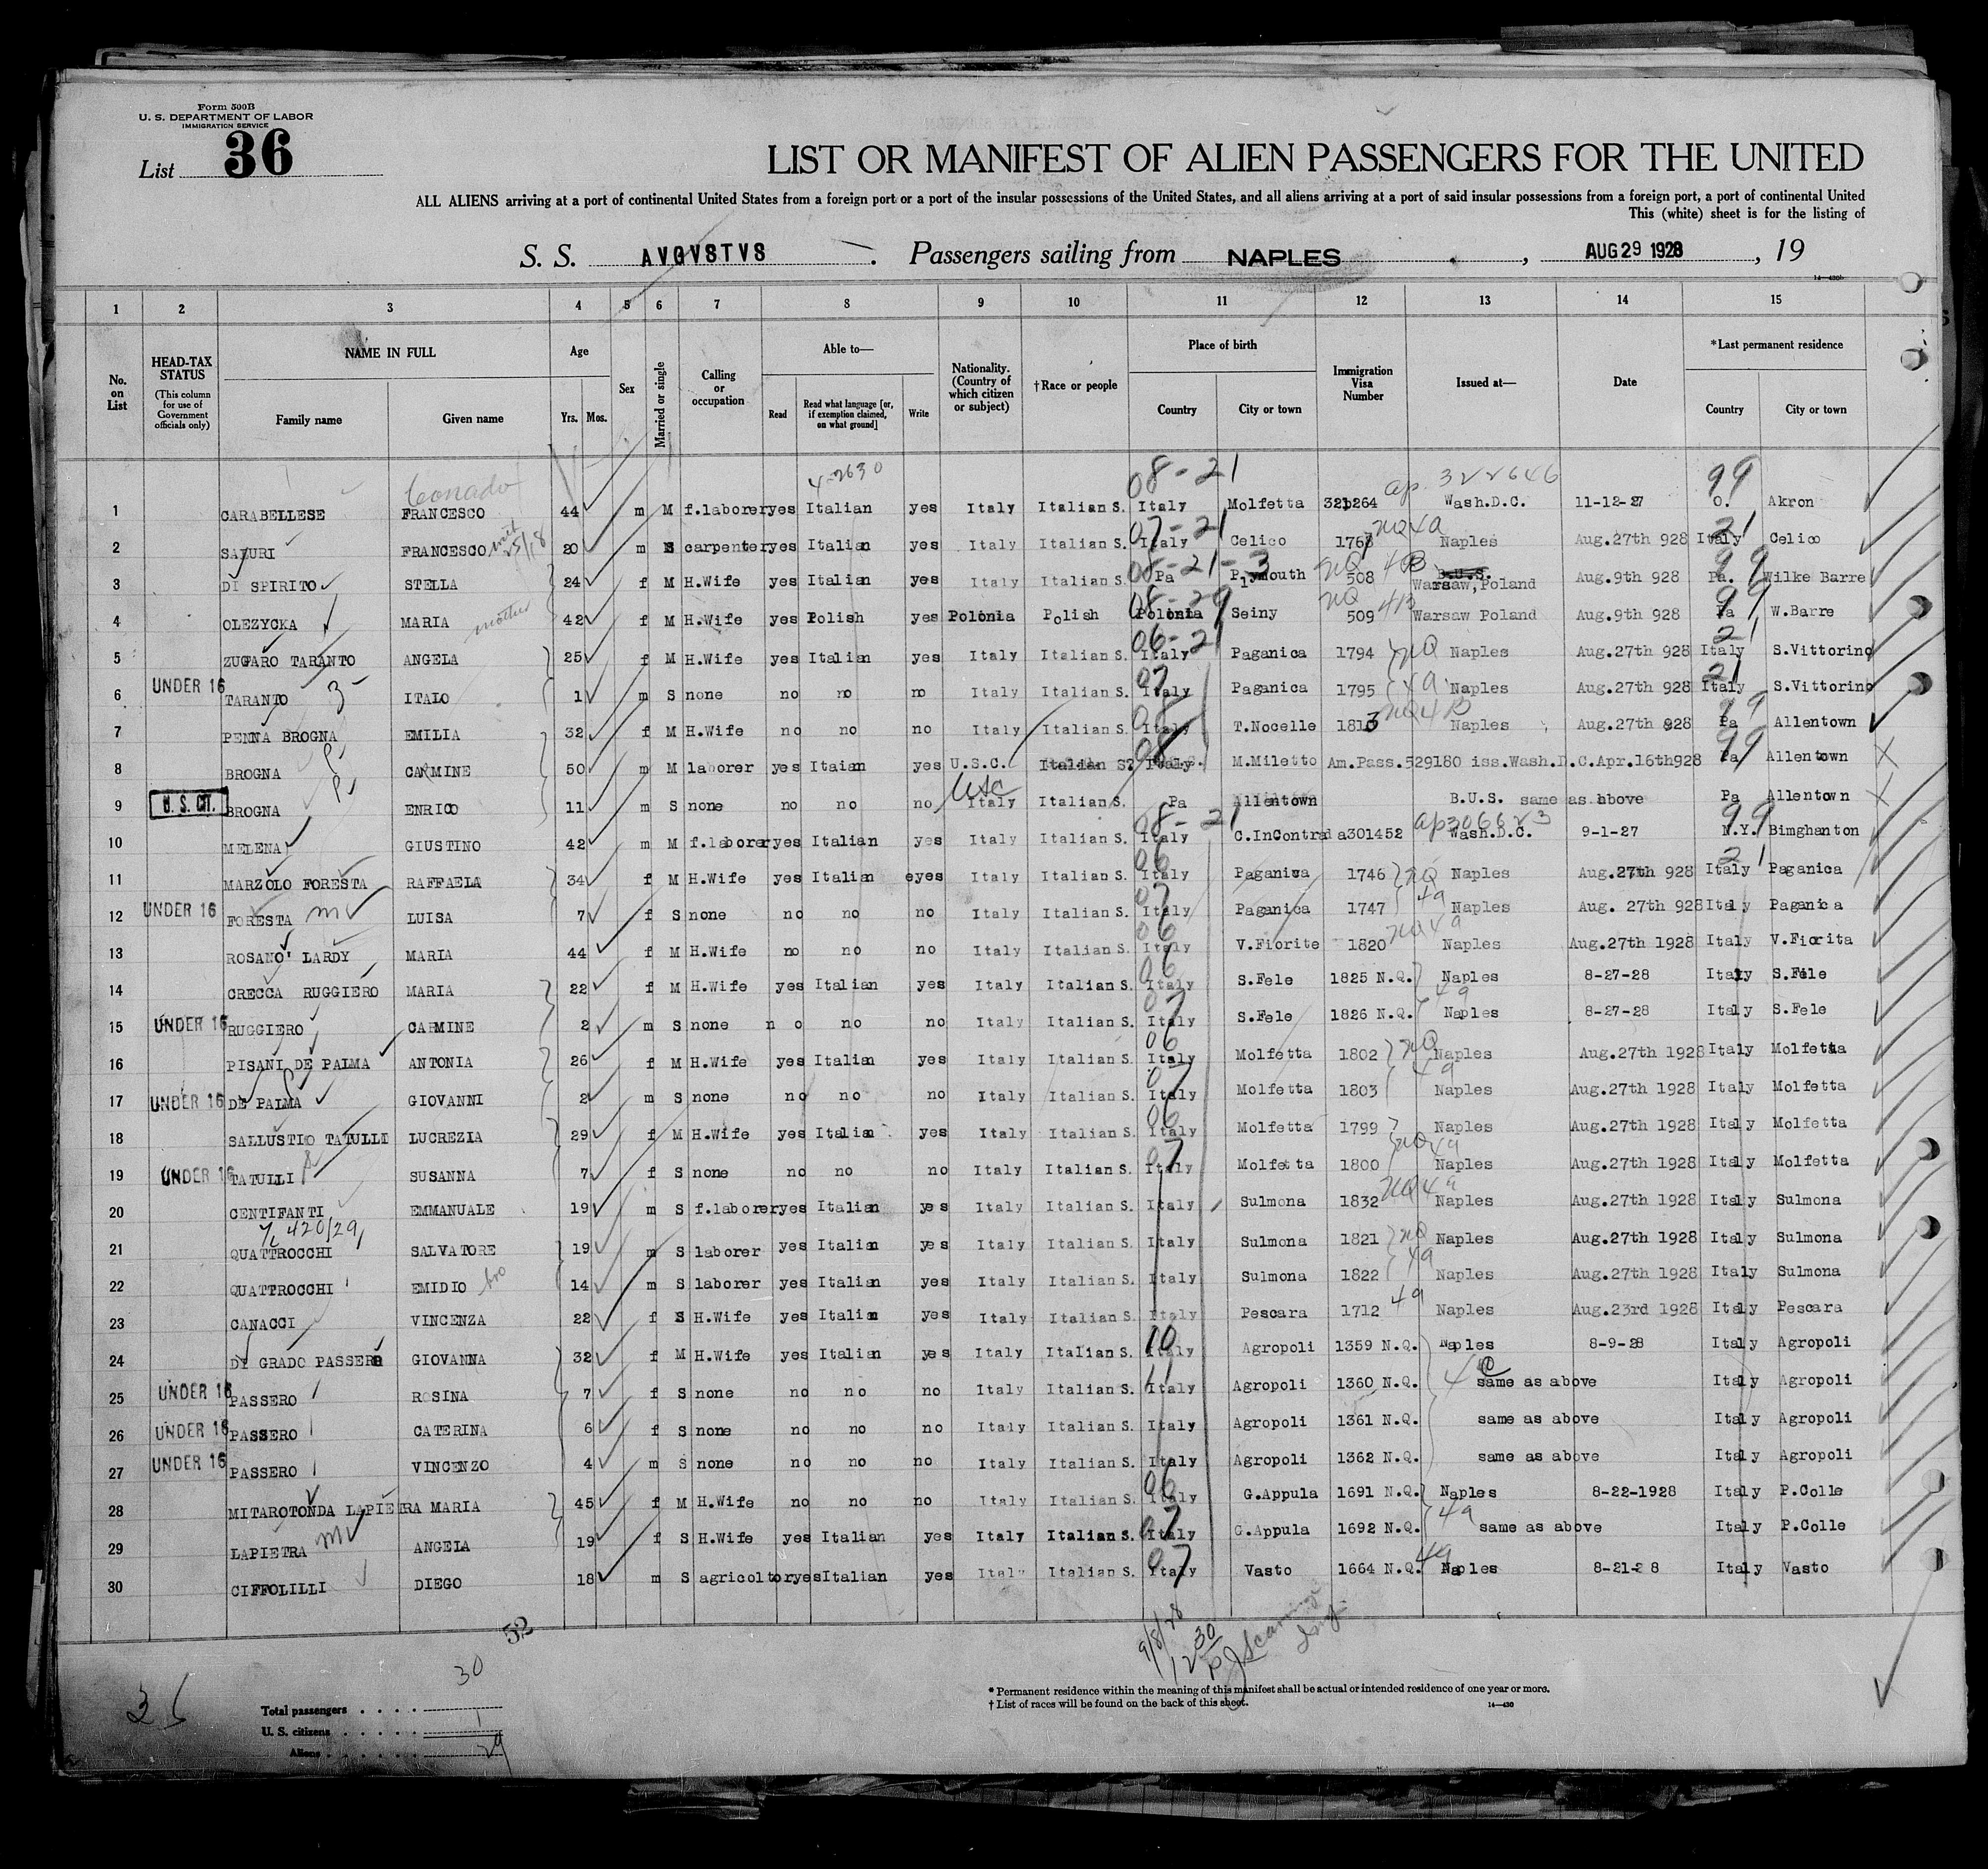 Form 500B
U. S. DEPARTMENT OF LABOR
IMMIGRATION SERVICE
List 36
LIST OR MANIFEST OF ALIEN PASSENGERS FOR THE UNITED
ALL ALIENS arriving at a port of continental United States from a foreign port or a port of the insular possessions of the United States, and all aliens arriving at a port of said insular possessions from a foreign port, a port of continental United
This (white) sheet is for the listing of
S. S. AVGVSTVS. Passengers sailing from NAPLES, AUG 29 1928, 19
14—430b
1 2 3 4 5 6 7 8 9 10 11 12 13 14 15
No. on List
HEAD-TAX STATUS
(This column for use of Government officials only)
NAME IN FULL
Family name
Given name
Age
Yrs. Mos.
Sex
Married or single
Calling or occupation
Able to—
Read
Read what language [or, if exemption claimed, on what ground]
Write
Nationality. (Country of which citizen or subject)
†Race or people
Place of birth
Country
City or town
Immigration Visa Number
Issued at—
Date
*Last permanent residence
Country
City or town
Conado 4-2630 08-21 ap. 322646 99
1 CARABELLESE FRANCESCO 44 m M f.laborer yes Italian yes Italy Italian S. Italy Molfetta Wash.D.C. 11-12-27 O. Akron
07-21 NQ 4a 21
2 FRANCESCO 20 m S carpenter yes Italian yes Italy Italian S. Italy Celico Naples Aug.27th 928 Italy Celico
08-21-3 NQ 4B 99
3 DI SPIRITO STELLA 24 f M H.Wife yes Italian yes Italy Italian S. Pa Plymouth 508 B.U.S. Warsaw, Poland Aug.9th 928 Pa. Wilke Barre
mother NQ 4B
4 OLEZYCKA MARIA 42 f M H.Wife yes Polish yes Polonia Polish Polonia Seiny 509 Warsaw Poland Aug.9th 928 Pa W.Barre
06-21 21
5 ZUGARO TARANTO ANGELA 25 f M H.Wife yes Italian yes Italy Italian S. Italy Paganica 1794 NQ Naples Aug.27th 928 Italy S.Vittorino
6 UNDER 16 TARANTO ITALO 1 m S none no no no Italy Italian S. Italy Paganica 1795 4a Naples Aug.27th 928 Italy S.Vittorino
NQ 4B
7 PENNA BROGNA EMILIA 32 f M H.Wife no no no Italy Italian S. Italy T.Nocelle 1813 Naples Aug.27th 928 Pa Allentown
8 BROGNA CARMINE 50 m M laborer yes Itaian yes U.S.C. Italian S. Italy M.Miletto Am.Pass.529180 iss.Wash.D.C.Apr.16th928 Pa Allentown
9 U.S. CIT. BROGNA ENRICO 11 m S none no no no USC Italy Italian S. Pa Allentown B.U.S. same as above Pa Allentown
08-21 99
10 MELENA GIUSTINO 42 m M f.laborer yes Italian yes Italy Italian S. Italy C.InContrad a301452 Wash.D.C. 9-1-27 N.Y. Bimghanton
06 21
11 MARZOLO FORESTA RAFFAELA 34 f M H.Wife yes Italian eyes Italy Italian S. Italy Paganica 1746 NQ Naples Aug.27th 928 Italy Paganica
12 UNDER 16 FORESTA LUISA 7 f S none no no no Italy Italian S. Italy Paganica 1747 4a Naples Aug. 27th 928 Italy Paganica
NQ 4a
13 ROSANO' LARDY MARIA 44 f M H.Wife no no no Italy Italian S. Italy V.Fiorite 1820 Naples Aug.27th 1928 Italy V.Fiorita
14 CRECCA RUGGIERO MARIA 22 f M H.Wife yes Italian yes Italy Italian S. Italy S.Fele 1825 N.Q. Naples 8-27-28 Italy S.Fele
15 UNDER 16 RUGGIERO CARMINE 2 m S none n o no no Italy Italian S. Italy S.Fele 1826 N.Q. 4a Naples 8-27-28 Italy S.Fele
16 PISANI DE PALMA ANTONIA 26 f M H.Wife yes Italian yes Italy Italian S. Italy Molfetta 1802 NQ Naples Aug.27th 1928 Italy Molfetta
17 UNDER 16 DE PALMA GIOVANNI 2 m S none no no no Italy Italian S. Italy Molfetta 1803 4a Naples Aug.27th 1928 Italy Molfetta
18 SALLUSTIO TATULLI LUCREZIA 29 f M H.Wife yes Italian yes Italy Italian S. Italy Molfetta 1799 Naples Aug.27th 1928 Italy Molfetta
19 UNDER 16 TATULLI SUSANNA 7 f S none no no no Italy Italian S. Italy Molfetta 1800 NQ 4a Naples Aug.27th 1928 Italy Molfetta
20 CENTIFANTI EMMANUALE 19 m S f.laborer yes Italian yes Italy Italian S. Italy Sulmona 1832 NQ 4a Naples Aug.27th 1928 Italy Sulmona
420/29
21 QUATTROCCHI SALVATORE 19 m S laborer yes Italian yes Italy Italian S. Italy Sulmona 1821 NQ Naples Aug.27th 1928 Italy Sulmona
22 QUATTROCCHI EMIDIO bro 14 m S laborer yes Italian yes Italy Italian S. Italy Sulmona 1822 4a Naples Aug.27th 1928 Italy Sulmona
23 CANACCI VINCENZA 22 f S H.Wife yes Italian yes Italy Italian S. Italy Pescara 1712 4a Naples Aug.23rd 1928 Italy Pescara
24 DI GRADO PASSERO GIOVANNA 32 f M H.Wife yes Italian yes Italy Italian S. Italy Agropoli 1359 N.Q. Naples 8-9-28 Italy Agropoli
25 UNDER 16 PASSERO ROSINA 7 f S none no no no Italy Italian S. Italy Agropoli 1360 N.Q. same as above Italy Agropoli
26 UNDER 16 PASSERO CATERINA 6 f S none no no no Italy Italian S. Italy Agropoli 1361 N.Q. same as above Italy Agropoli
27 UNDER 16 PASSERO VINCENZO 4 m S none no no no Italy Italian S. Italy Agropoli 1362 N.Q. same as above Italy Agropoli
28 MITAROTONDA LAPIETRA MARIA 45 f M H.Wife no no no Italy Italian S. Italy G.Appula 1691 N.Q. Naples 8-22-1928 Italy P.Colle
29 LAPIETRA ANGELA 19 f S H.Wife yes Italian yes Italy Italian S. Italy G.Appula 1692 N.Q. 4a same as above Italy P.Colle
30 CIFFOLILLI DIEGO 18 m S agricoltor yes Italian yes Italy Italian S. Italy Vasto 1664 N.Q. 4a Naples 8-21-28 Italy Vasto
52
9/8/28
12 30 P
* Permanent residence within the meaning of this manifest shall be actual or intended residence of one year or more.
† List of races will be found on the back of this sheet.
14—430
Total passengers . . . . 30
U. S. citizens . . . . . 1
Aliens . . . . . . 29